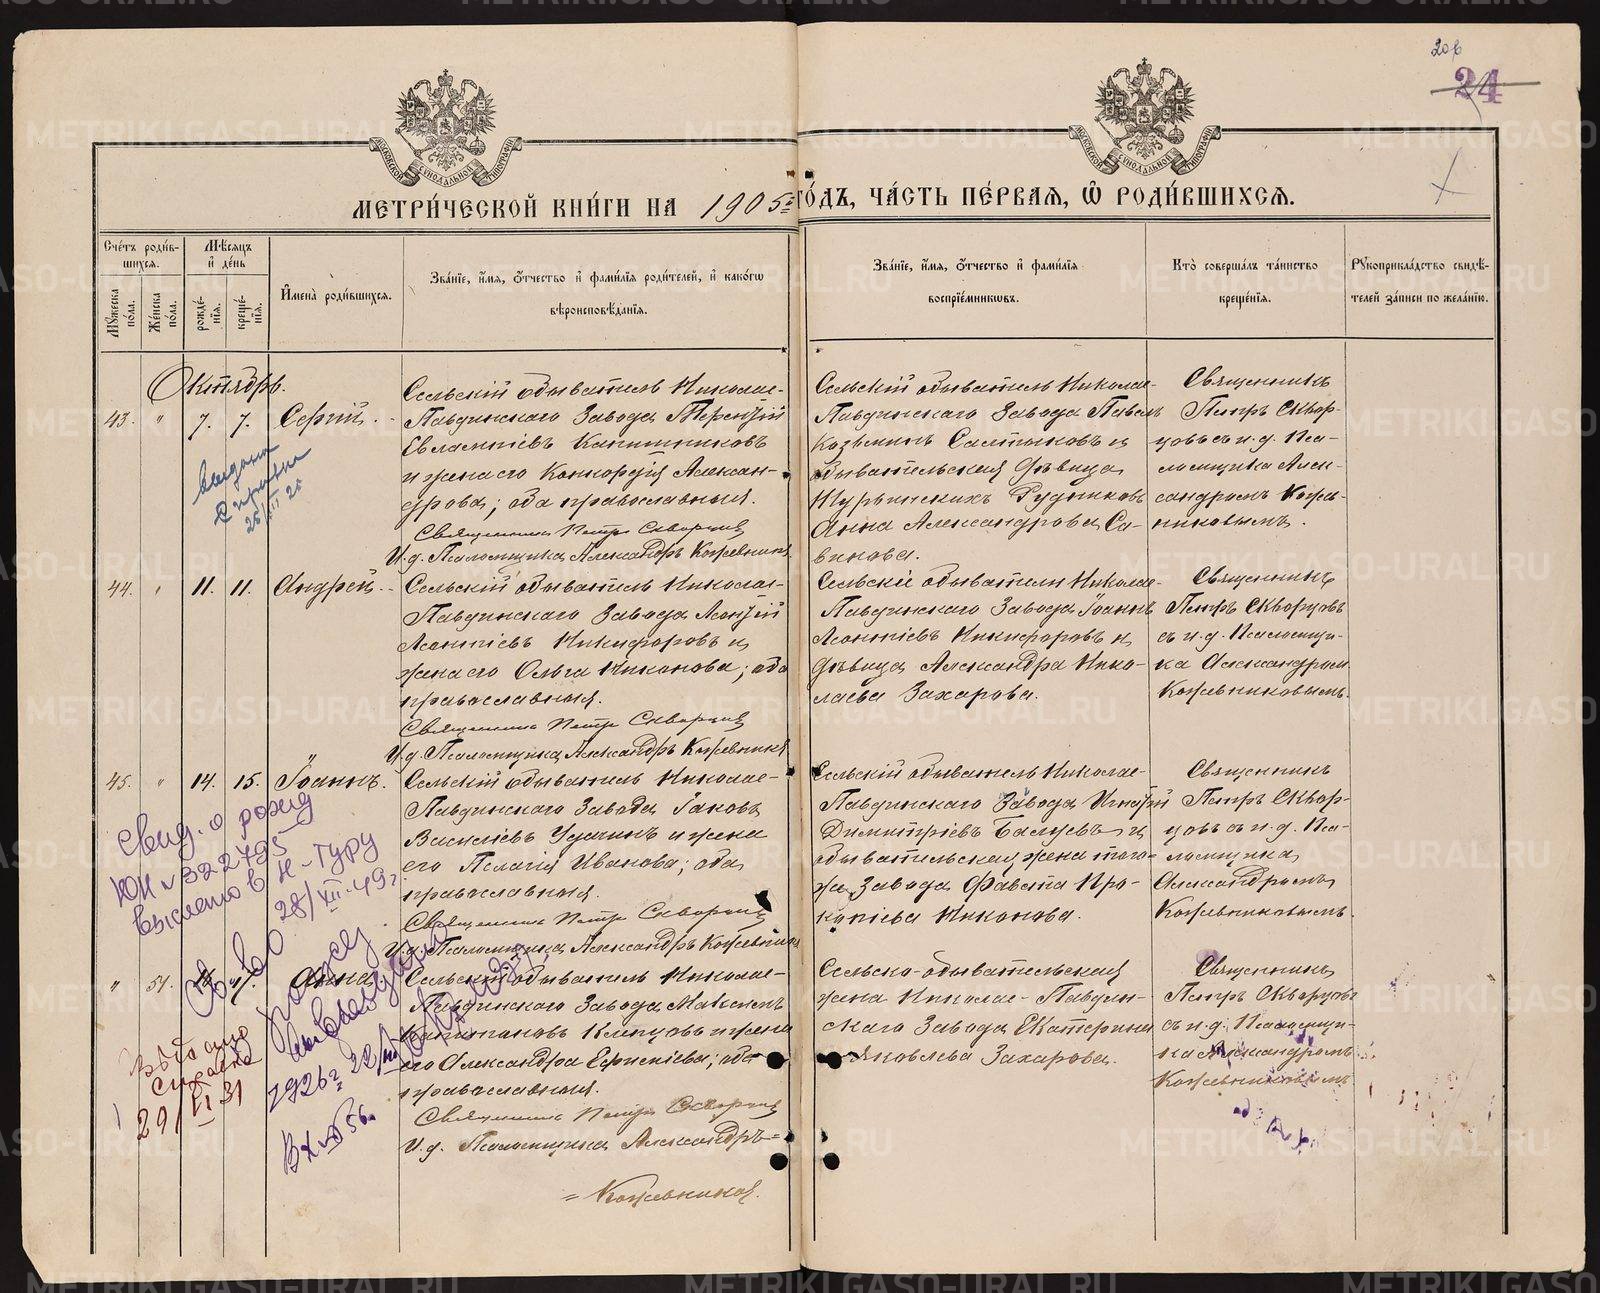 20б
24
МЕТРИ́ЧЕСКОЙ КНИ́ГИ НА 1905 ГО́ДЪ, ЧА́СТЬ ПЕ́РВАЯ, Ѡ҆ РОДИ́ВШИХСЯ.
Сче́тъ роди́в-
шихся.
Мꙋ́жеска по́ла.
Же́нска по́ла.
Мѣ́сяцъ и҆ де́нь
рожде́нїя.
креще́нїя.
И҆мена̀ роди́вшихся.
Зва́нїе, и҆́мя, ѻ҆́тчество и҆ фами́лїя роди́телей, и҆ како́гѡ
вѣроисповѣ́данїя.
Зва́нїе, и҆́мя, ѻ҆́тчество и҆ фами́лїя
воспрїе́мникѡвъ.
Кто̀ соверша́лъ та́инство
креще́нїя.
Рꙋкоприкла́дство свидѣ́-
телей за́писи по жела́нїю.
Октябрь.
43. " 7. 7. Сергій.
Сельскій обыватель Николае-
Павдинскаго Завода Терентій
Евлампіевъ Капишниковъ
и жена его Конкордія Алексан-
дрова; оба православныя.
Священникъ Петръ Скворцов
И. д. Псаломщика Александръ Кожевников
Сельскій обыватель Николае-
Павдинскаго Завода Павелъ
Козьминъ Салтыковъ и
обывательская дѣвица
Турьинскихъ Рудниковъ
Анна Александрова Са-
винова.
Священникъ
Петръ Сквор-
цовъ съ и. д. Пса-
ломщика Алек-
сандромъ Коже-
никовымъ.
выдана
справка
25/III 25
44. " 11. 11. Андрей.
Сельскій обыватель Николае-
Павдинскаго Завода Леонтій
Леонтіевъ Никифоровъ и
жена его Ольга Никонова; оба
православныя.
Священникъ Петръ Скворцов
И. д. Псаломщика Александръ Кожевников
Сельскіе обыватели Николае-
Павдинскаго Завода Іоаннъ
Леонтіевъ Никифоровъ и
дѣвица Александра Нико-
лаева Захарова.
Священникъ
Петръ Скворцовъ
съ и. д. Псаломщи-
ка Александром
Кожевниковымъ.
45. " 14. 15. Іоаннъ.
Сельскій обыватель Николае-
Павдинскаго Завода Іаковъ
Василіевъ Удачинъ и жена
его Пелагія Иванова; оба
православныя.
Священникъ Петръ Скворцов
И. д. Псаломщика Александръ Кожевников
Сельскій обыватель Николае-
Павдинскаго Завода Игнатій
Димитріевъ Балуевъ и
обывательская жена того-
же Завода Фавста Про-
копіева Никонова.
Священникъ
Петръ Сквор-
цовъ съ и. д. Пса-
ломщика
Александромъ
Кожевниковымъ.
Свид. о рожд
ЮИ № 322795
выслано в Н-Туру
28/XII-49г.
" 51. Анна
Сельскій обыватель Николае-
Павдинскаго Завода Максимъ
Клепцовъ и жена
его Александра; оба
православныя.
Священникъ Петръ Скворцов
И. д. Псаломщика Александръ-
= Кожевников.
Сельско-обывательская
жена Николае-Павдин-
скаго Завода Екатерина
Яковлева Захарова.
Священникъ
Петръ Скворцовъ
съ и. д. Псаломщи-
ка Александромъ
Кожевниковымъ
справка
29/VI 31
1926г.
METRIKI.GASO-URAL.RU